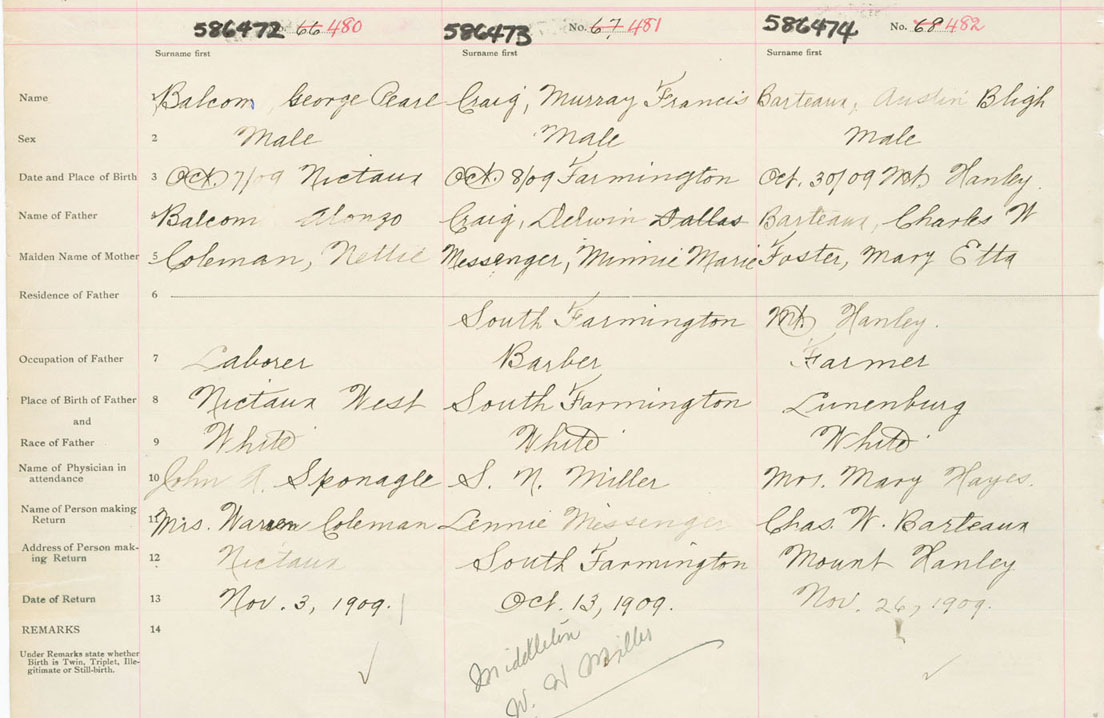 586472 No. 66 480 586473 No. 67 481 586474 No. 68 482
Surname first Surname first Surname first
Name 1 Balcom, George Pearl Craig, Murray Francis Barteaux, Austin Bligh
Sex 2 Male Male Male
Date and Place of Birth 3 Oct. 7/09 Nictaux Oct. 8/09 Farmington Oct. 30/09 Mt. Hanley.
Name of Father 4 Balcom Alonzo Craig, Delwin Dallas Barteaux, Charles W
Maiden Name of Mother 5 Coleman, Nettie Messenger, Minnie Marie Foster, Mary Etta
Residence of Father 6
South Farmington Mt. Hanley.
Occupation of Father 7 Laborer Barber Farmer
Place of Birth of Father 8 Nictaux West South Farmington Lunenburg
and
Race of Father 9 White White White
Name of Physician in
attendance 10 John A. Sponagle S. N. Miller Mrs. Mary Hayes.
Name of Person making
Return 11 Mrs. Warren Coleman Lennie Messenger Chas. W. Barteaux
Address of Person mak-
ing Return 12 Nictaux South Farmington Mount Hanley
Date of Return 13 Nov. 3, 1909. Oct. 13, 1909. Nov. 26, 1909.
REMARKS 14
Under Remarks state whether
Birth is Twin, Triplet, Ille-
gitimate or Still-birth.
Middleton
W. H Miller